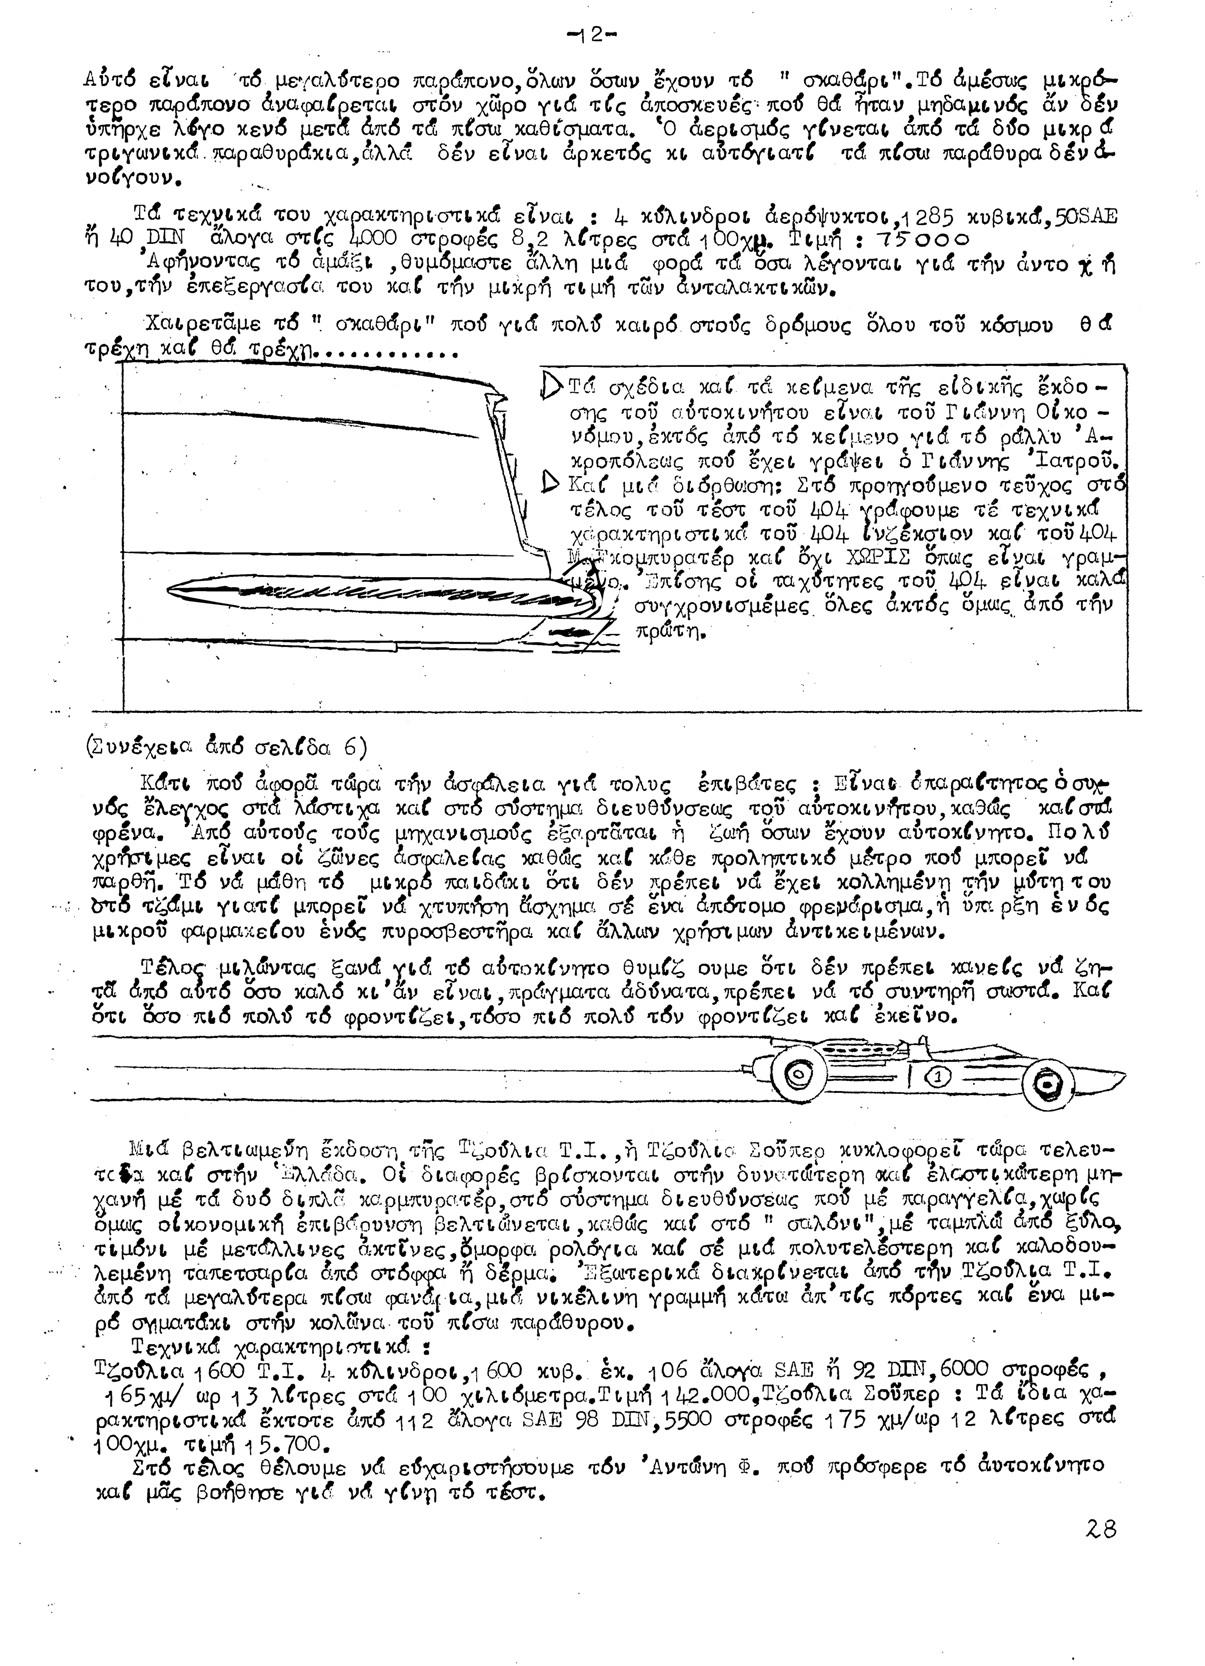 -12-
Αὐτό εἶναι τό μεγαλύτερο παράπονο,ὅλων ὅσων ἔχουν τό " σκαθάρι".Τό ἀμέσως μικρό-
τερο παράπονο ἀναφαίρεται στόν χῶρο γιά τίς ἀποσκευές πού θά ἦταν μηδαμινός ἄν δέν
ὑπῆρχε λίγο κενό μετά ἀπό τά πίσω καθίσματα. Ὁ ἀερισμός γίνεται ἀπό τά δύο μικρά
τριγωνικά παραθυράκια,ἀλλά δέν εἶναι ἀρκετός κι αὐτόγιατί τά πίσω παράθυρα δέν ἀ-
νοίγουν.
Τά τεχνικά του χαρακτηριστικά εἶναι : 4 κύλινδροι ἀερόψυκτοι,1285 κυβικά,50SAE
ἤ 40 DIN ἄλογα στίς 4000 στροφές 8,2 λίτρες στά 100χμ. Τιμή : 75000
Ἀφήνοντας τό ἁμάξι ,θυμόμαστε ἄλλη μιά φορά τά ὅσα λέγονται γιά τήν ἀντοχή
του,τήν ἐπεξεργασία του καί τήν μικρή τιμή τῶν ἀνταλακτικῶν.
Χαιρετᾶμε τό " σκαθάρι" πού γιά πολύ καιρό στούς δρόμους ὅλου τοῦ κόσμου θά
τρέχη καί θά τρέχη............
Τά σχέδια καί τά κείμενα τῆς εἰδικῆς ἔκδο -
σης τοῦ αὐτοκινήτου εἶναι τοῦ Γιάννη Οἰκο -
νόμου,ἐκτός ἀπό τό κείμενο γιά τό ράλλυ Ἀ-
κροπόλεως πού ἔχει γράψει ὁ Γιάννης Ἰατροῦ.
Καί μιά διόρθωση: Στό προηγούμενο τεῦχος στό
τέλος τοῦ τέστ τοῦ 404 γράφουμε τέ τεχνικά
χαρακτηριστικά τοῦ 404 ἰνζέκσιον καί τοῦ 404
Μ. Γκομπυρατέρ καί ὄχι ΧΩΡΙΣ ὅπως εἶναι γραμ-
μένο. Ἐπίσης οἱ ταχύτητες τοῦ 404 εἶναι καλά
συγχρονισμέμες ὅλες ἀκτός ὅμως ἀπό τήν
πρώτη.
(Συνέχεια ἀπό σελίδα 6)
Κάτι πού ἀφορᾶ τώρα τήν ἀσφάλεια γιά τολυς ἐπιβάτες : Εἶναι ἀπαραίτητος ὁ συχ-
νός ἔλεγχος στά λάστιχα καί στό σύστημα διευθύνσεως τοῦ αὐτοκινήτου,καθώς καί στά
φρένα. Ἀπό αὐτούς τούς μηχανισμούς ἐξαρτᾶται ἡ ζωή ὅσων ἔχουν αὐτοκίνητο. Πολύ
χρήσιμες εἶναι οἱ ζῶνες ἀσφαλείας καθώς καί κάθε προληπτικό μέτρο πού μπορεῖ νά
παρθῆ. Τό νά μάθη τό μικρό παιδάκι ὅτι δέν πρέπει νά ἔχει κολλημένη τήν μύτη του
στό τζάμι γιατί μπορεῖ νά χτυπήση ἄσχημα σέ ἕνα ἀπότομο φρενάρισμα,ἡ ὕπαρξη ἑνός
μικροῦ φαρμακείου ἑνός πυροσβεστῆρα καί ἄλλων χρήσιμων ἀντικειμένων.
Τέλος μιλώντας ξανά γιά τό αὐτοκίνητο θυμίζ ουμε ὅτι δέν πρέπει κανείς νά ζη-
τᾶ ἀπό αὐτό ὅσο καλό κι'ἄν εἶναι,πράγματα ἀδύνατα,πρέπει νά τό συντηρῆ σωστά. Καί
ὅτι ὅσο πιό πολύ τό φροντίζει,τόσο πιό πολύ τόν φροντίζει καί ἐκεῖνο.
1
Μιά βελτιωμένη ἔκδοση τῆς Τζούλια Τ.Ι.,ἡ Τζούλια Σοῦπερ κυκλοφορεῖ τώρα τελευ-
ταία καί στήν Ἑλλάδα. Οἱ διαφορές βρίσκονται στήν δυνατώτερη καί ἐλαστικώτερη μη-
χανή μέ τά δυό διπλᾶ καρμπυρατέρ,στό σύστημα διευθύνσεως πού μέ παραγγελία,χωρίς
ὅμως οἰκονομική ἐπιβάρυνση βελτιώνεται,καθώς καί στό " σαλόνι",μέ ταμπλώ ἀπό ξύλο,
τιμόνι μέ μετάλλινες ἀκτῖνες,ὄμορφα ρολόγια καί σέ μιά πολυτελέστερη καί καλοδου-
λεμένη ταπετσαρία ἀπό στόφφα ἤ δέρμα. Ἐξωτερικά διακρίνεται ἀπό τήν Τζούλια Τ.Ι.
ἀπό τά μεγαλύτερα πίσω φανάρια,μιά νικέλινη γραμμή κάτω ἀπ'τίς πόρτες καί ἕνα μι-
ρό σηματάκι στήν κολώνα τοῦ πίσω παράθυρου.
Τεχνικά χαρακτηριστικά :
Τζούλια 1600 Τ.Ι. 4 κύλινδροι,1600 κυβ. ἑκ. 106 ἄλογα SAE ἤ 92 DIN,6000 στροφές ,
165χμ/ ωρ 13 λίτρες στά 100 χιλιόμετρα.Τιμή 142.000,Τζούλια Σοῦπερ : Τά ἴδια χα-
ρακτηριστικά ἔκτοτε ἀπό 112 ἄλογα SAE 98 DIN,5500 στροφές 175 χμ/ωρ 12 λίτρες στά
100χμ. τιμή 15.700.
Στό τέλος θέλουμε νά εὐχαριστήσουμε τόν Ἀντώνη Φ. πού πρόσφερε τό αὐτοκίνητο
καί μᾶς βοήθησε γιά νά γίνη τό τέστ.
28